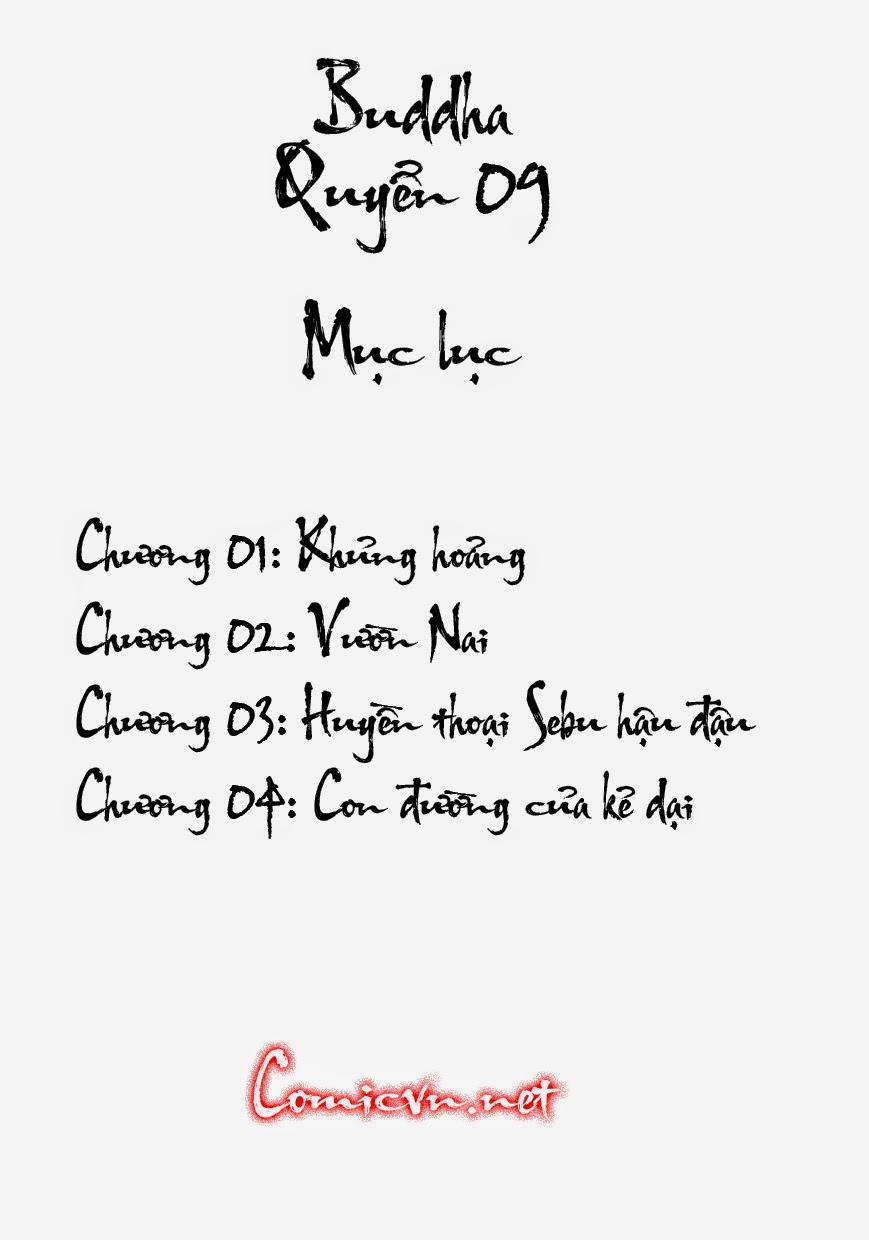 Buddha
Quyển 09
Mục lục
Chương 01: Khủng hoảng
Chương 02: Vườn Nai
Chương 03: Huyền thoại Sebu hậu đậu
Chương 04: Con đường của kẻ dại
Comicvn.net